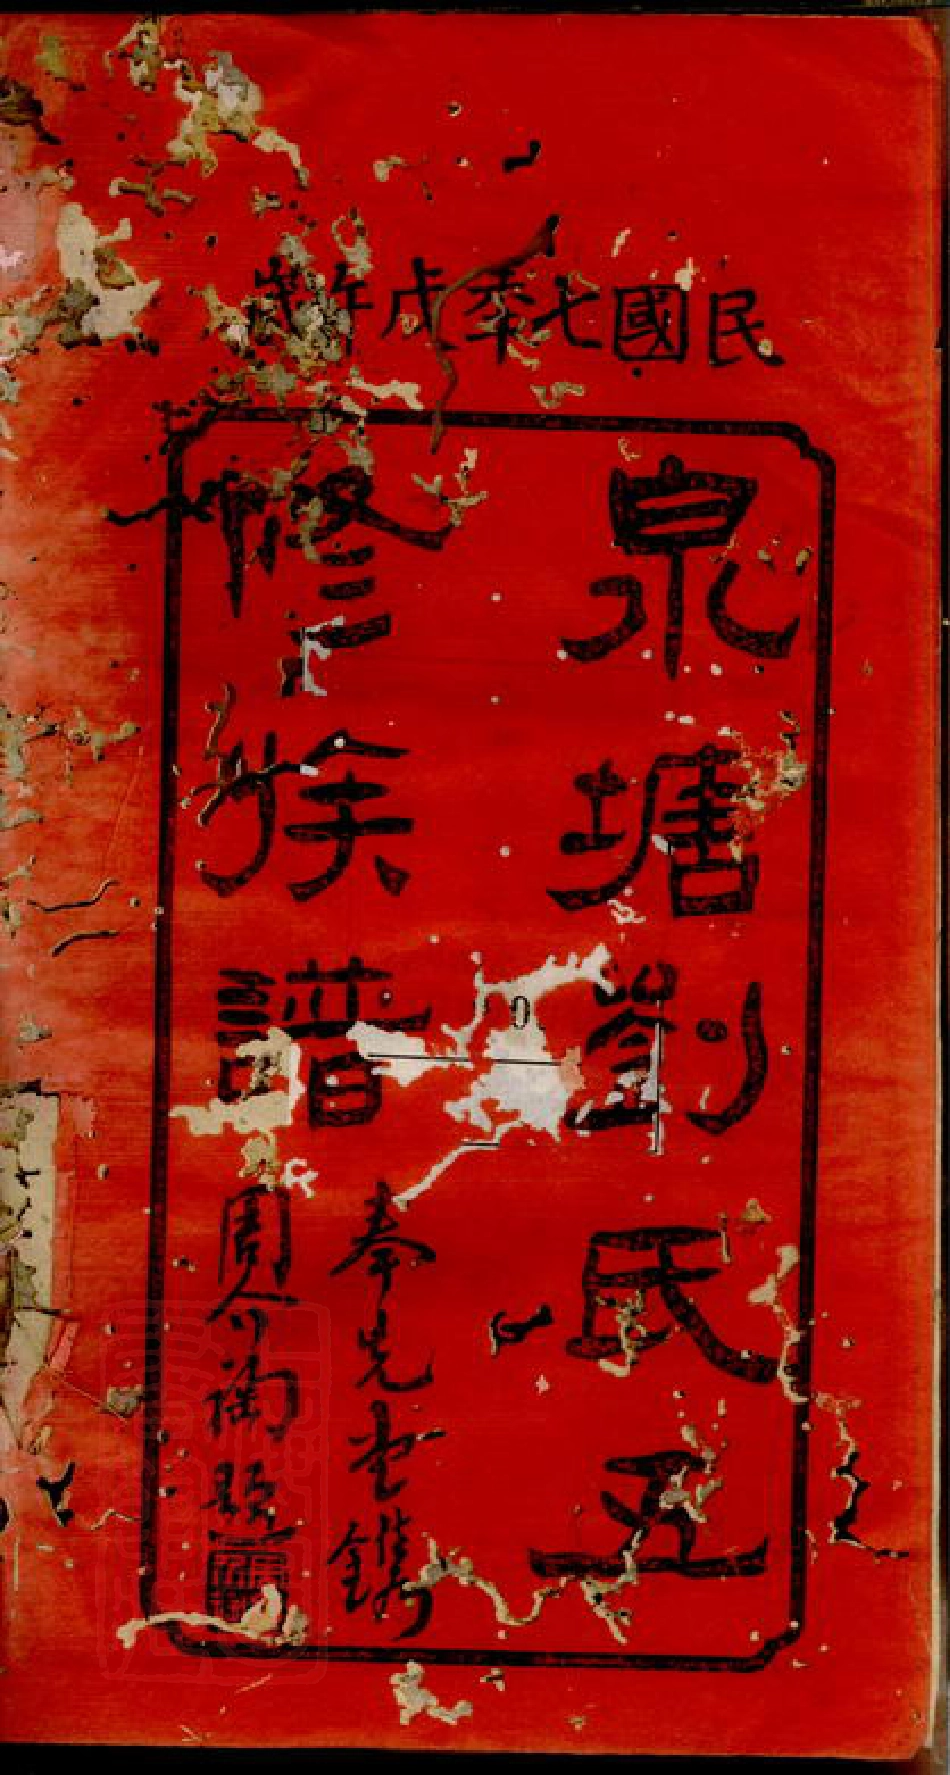 民國七季戊午歲
泉塘劉氏五
修族譜
奉先堂鐫
周介裪題